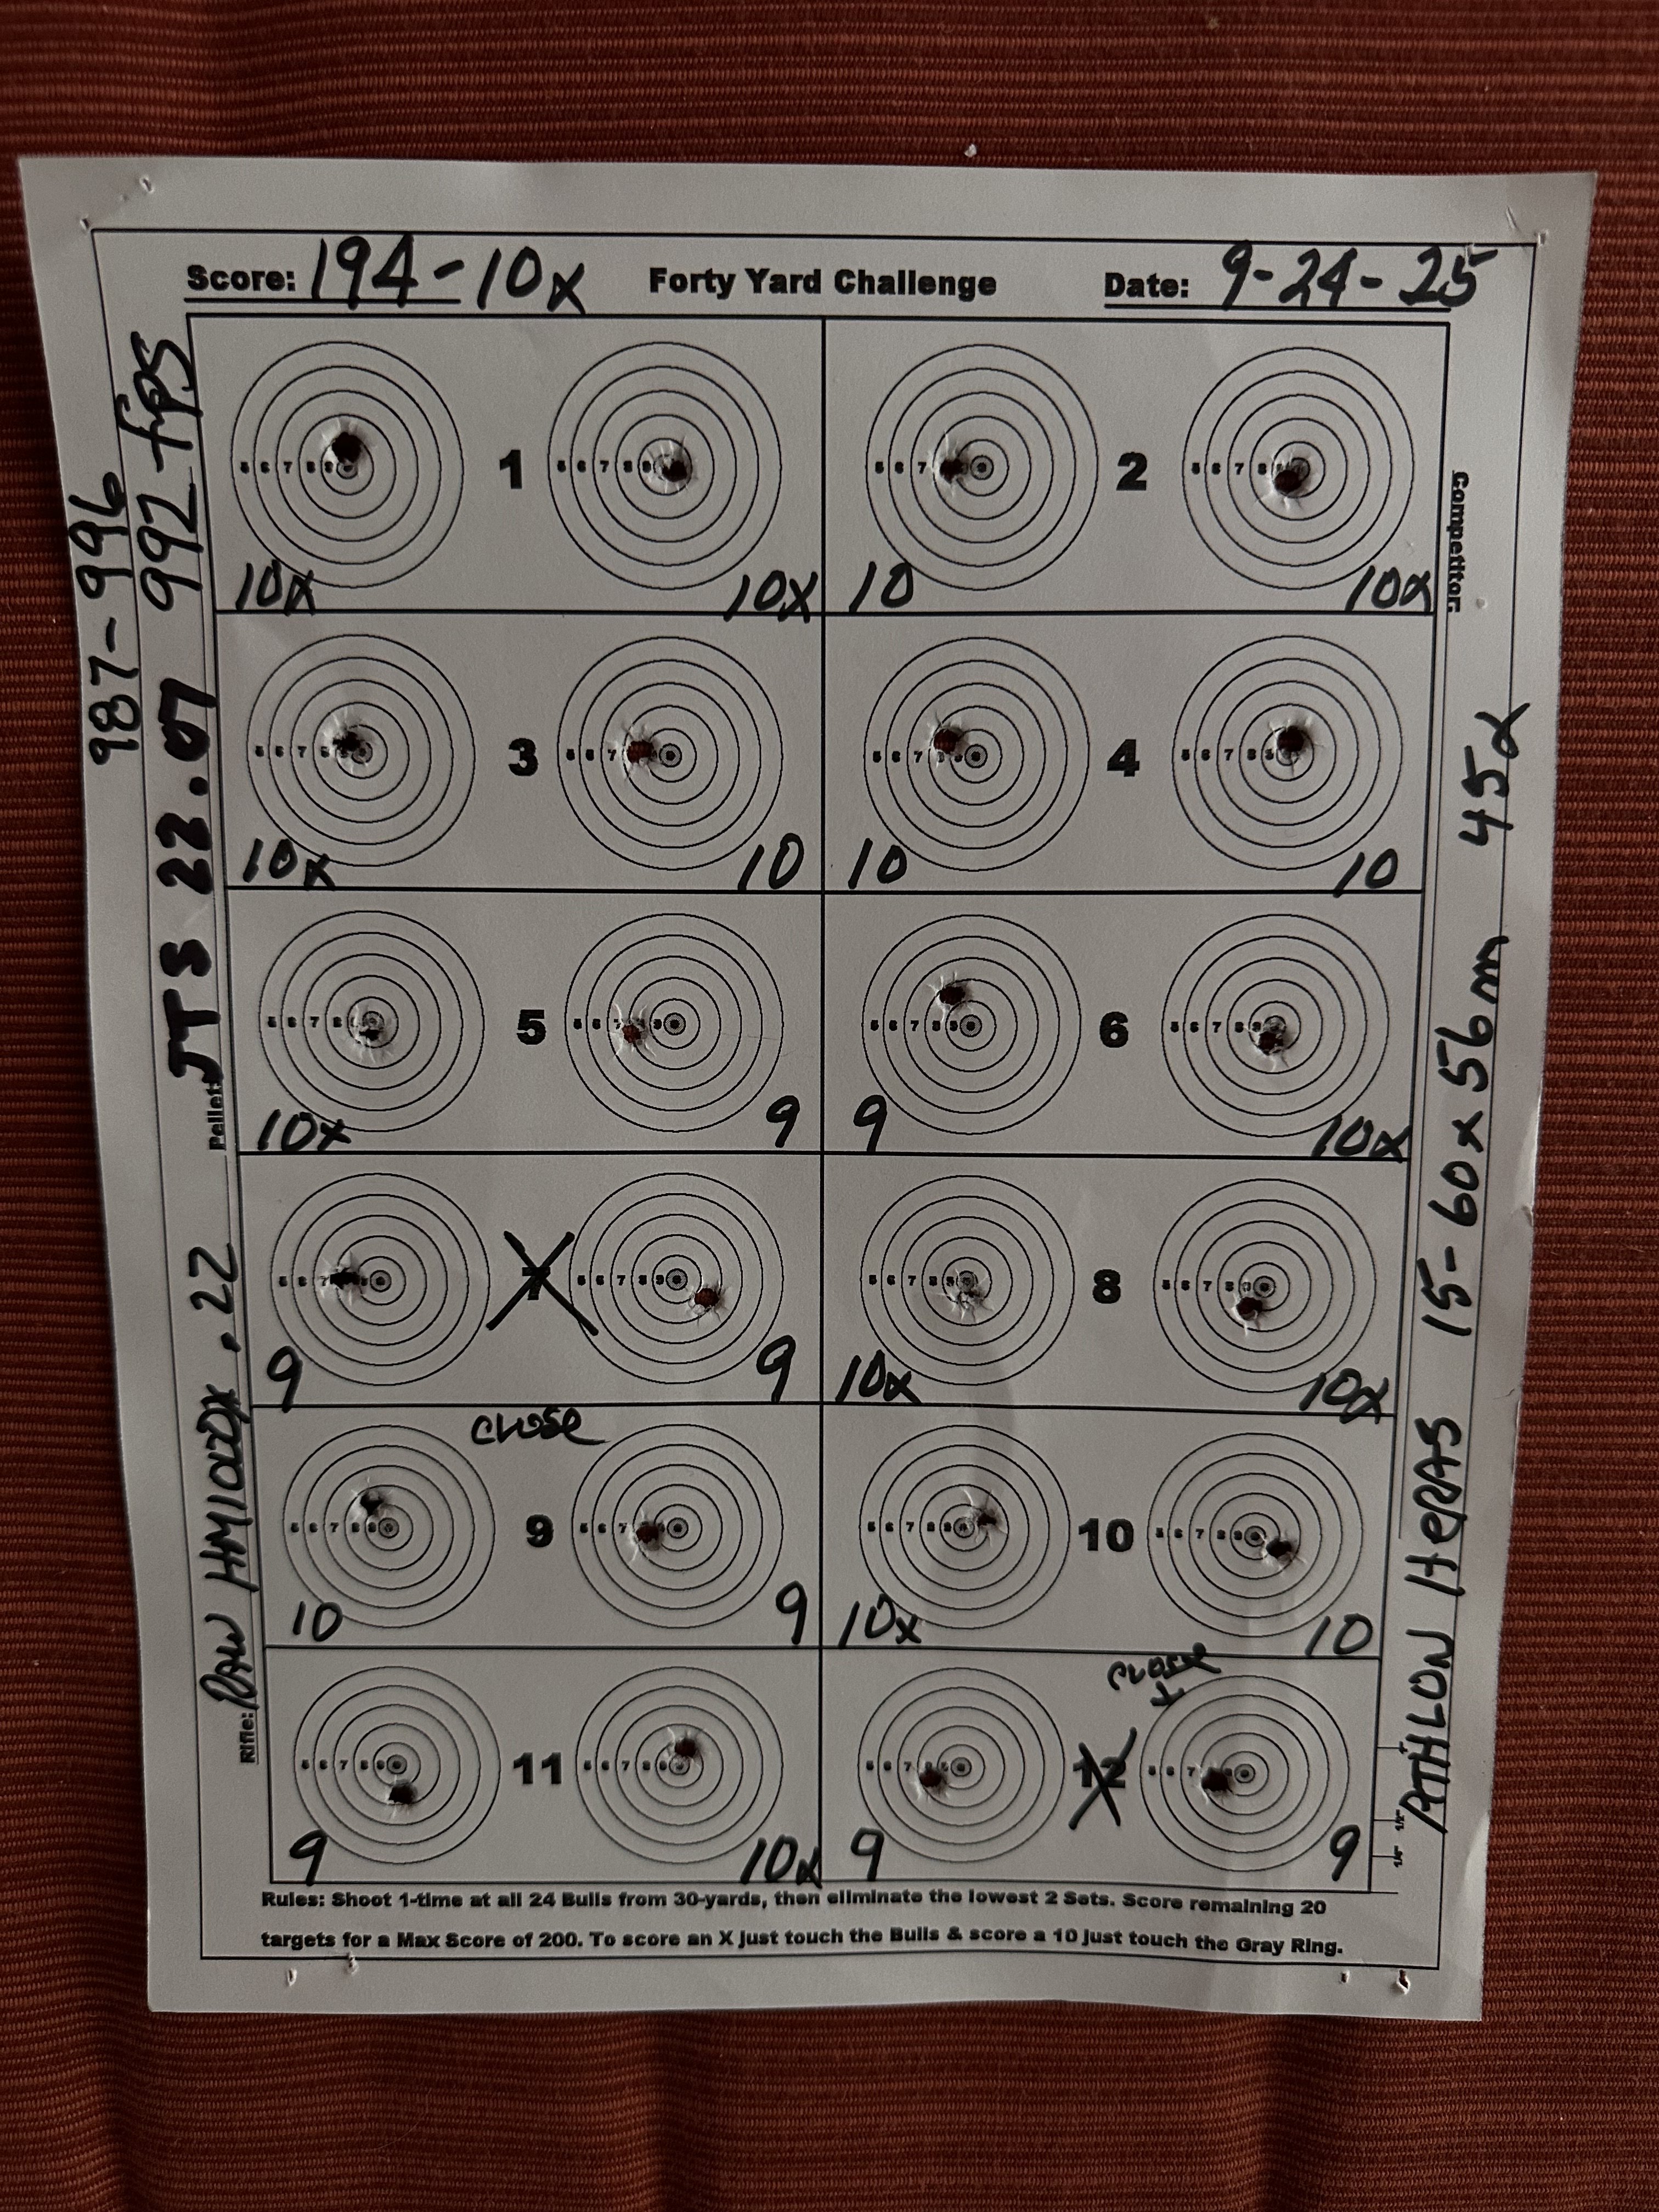 Score: 194-10x Forty Yard Challenge Date: 9-24-25
1 2
10x 10x 10 10x
3 4
10x 10 10 10
5 6
10x 9 9 10x
7 8
9 9 10x 10x
close
9 10
10 9 10x 10
11 12
9 10x 9 9
Rules: Shoot 1-time at all 24 Bulls from 30-yards, then eliminate the lowest 2 Sets. Score remaining 20
targets for a Max Score of 200. To score an X just touch the Bulls & score a 10 just touch the Gray Ring.
987-996
992 fps
Rifle: RAW HM1000X .22 Pellet: JTS 22.07
Competitor:
ATHLON HERAS 15-60x56m 45x